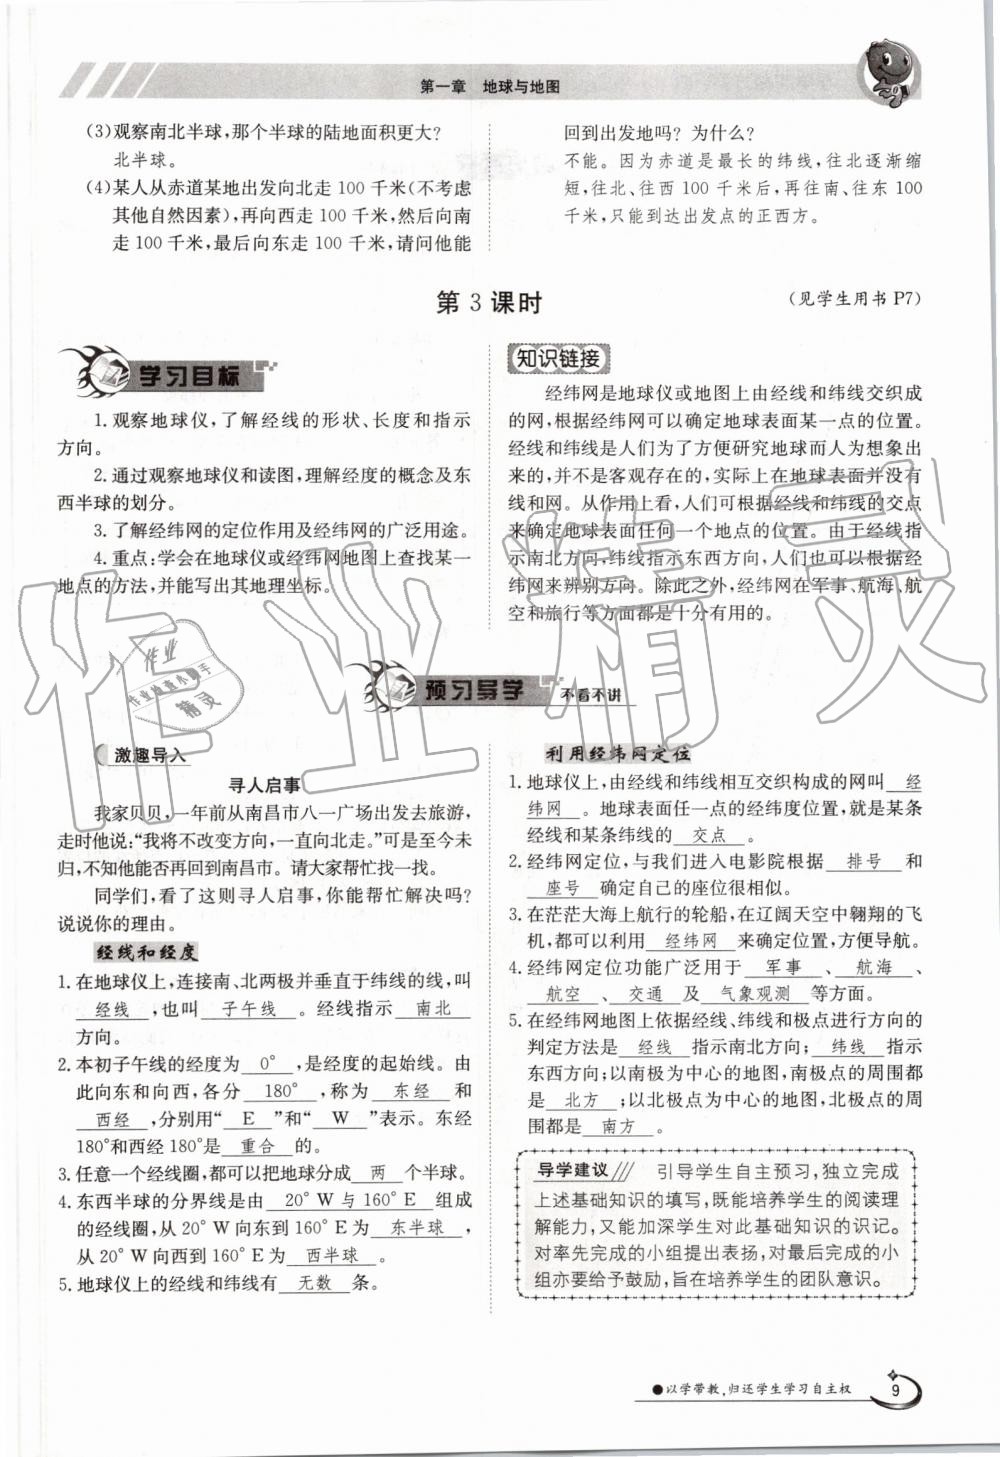 第一章 地球与地图
(3)观察南北半球,那个半球的陆地面积更大?
北半球。
(4)某人从赤道某地出发向北走 100 千米(不考虑
其他自然因素),再向西走 100 千米,然后向南
走 100 千米,最后向东走 100 千米,请问他能
回到出发地吗? 为什么?
不能。因为赤道是最长的纬线,往北逐渐缩
短,往北、往西 100 千米后,再往南、往东 100
千米,只能到达出发点的正西方。
第 3 课时
(见学生用书 P7)
学习目标
1.观察地球仪,了解经线的形状、长度和指示
方向。
2.通过观察地球仪和读图,理解经度的概念及东
西半球的划分。
3.了解经纬网的定位作用及经纬网的广泛用途。
4.重点:学会在地球仪或经纬网地图上查找某一
地点的方法,并能写出其地理坐标。
知识链接
经纬网是地球仪或地图上由经线和纬线交织成
的网,根据经纬网可以确定地球表面某一点的位置。
经线和纬线是人们为了方便研究地球而人为想象出
来的,并不是客观存在的,实际上在地球表面并没有
线和网。从作用上看,人们可根据经线和纬线的交点
来确定地球表面任何一个地点的位置。由于经线指
示南北方向,纬线指示东西方向,人们也可以根据经
纬网来辨别方向。除此之外,经纬网在军事、航海、航
空和旅行等方面都是十分有用的。
预习导学 不看不讲
激趣导入
寻人启事
我家贝贝,一年前从南昌市八一广场出发去旅游,
走时他说:“我将不改变方向,一直向北走。”可是至今未
归,不知他能否再回到南昌市。请大家帮忙找一找。
同学们,看了这则寻人启事,你能帮忙解决吗?
说说你的理由。
经线和经度
1.在地球仪上,连接南、北两极并垂直于纬线的线,叫
经线,也叫 子午线。经线指示 南北
方向。
2.本初子午线的经度为 0°,是经度的起始线。由
此向东和向西,各分 180°,称为 东经 和
西经,分别用“ E ”和“ W ”表示。东经
180°和西经 180°是 重合 的。
3.任意一个经线圈,都可以把地球分成 两 个半球。
4.东西半球的分界线是由 20° W 与 160° E 组成
的经线圈,从 20° W 向东到 160° E 为 东半球,
从 20° W 向西到 160° E 为 西半球。
5.地球仪上的经线和纬线有 无数 条。
利用经纬网定位
1.地球仪上,由经线和纬线相互交织构成的网叫 经
纬网。地球表面任一点的经纬度位置,就是某条
经线和某条纬线的 交点。
2.经纬网定位,与我们进入电影院根据 排号 和
座号 确定自己的座位很相似。
3.在茫茫大海上航行的轮船,在辽阔天空中翱翔的飞
机,都可以利用 经纬网 来确定位置,方便导航。
4.经纬网定位功能广泛用于 军事、航海、
航空、交通 及 气象观测 等方面。
5.在经纬网地图上依据经线、纬线和极点进行方向的
判定方法是 经线 指示南北方向; 纬线 指示
东西方向;以南极为中心的地图,南极点的周围都
是 北方;以北极点为中心的地图,北极点的周
围都是 南方。
导学建议/// 引导学生自主预习,独立完成
上述基础知识的填写,既能培养学生的阅读理
解能力,又能加深学生对此基础知识的识记。
对率先完成的小组提出表扬,对最后完成的小
组亦要给予鼓励,旨在培养学生的团队意识。
作业精灵
作业
作业检查小帮手
精灵
●以学带教,归还学生学习自主权
9